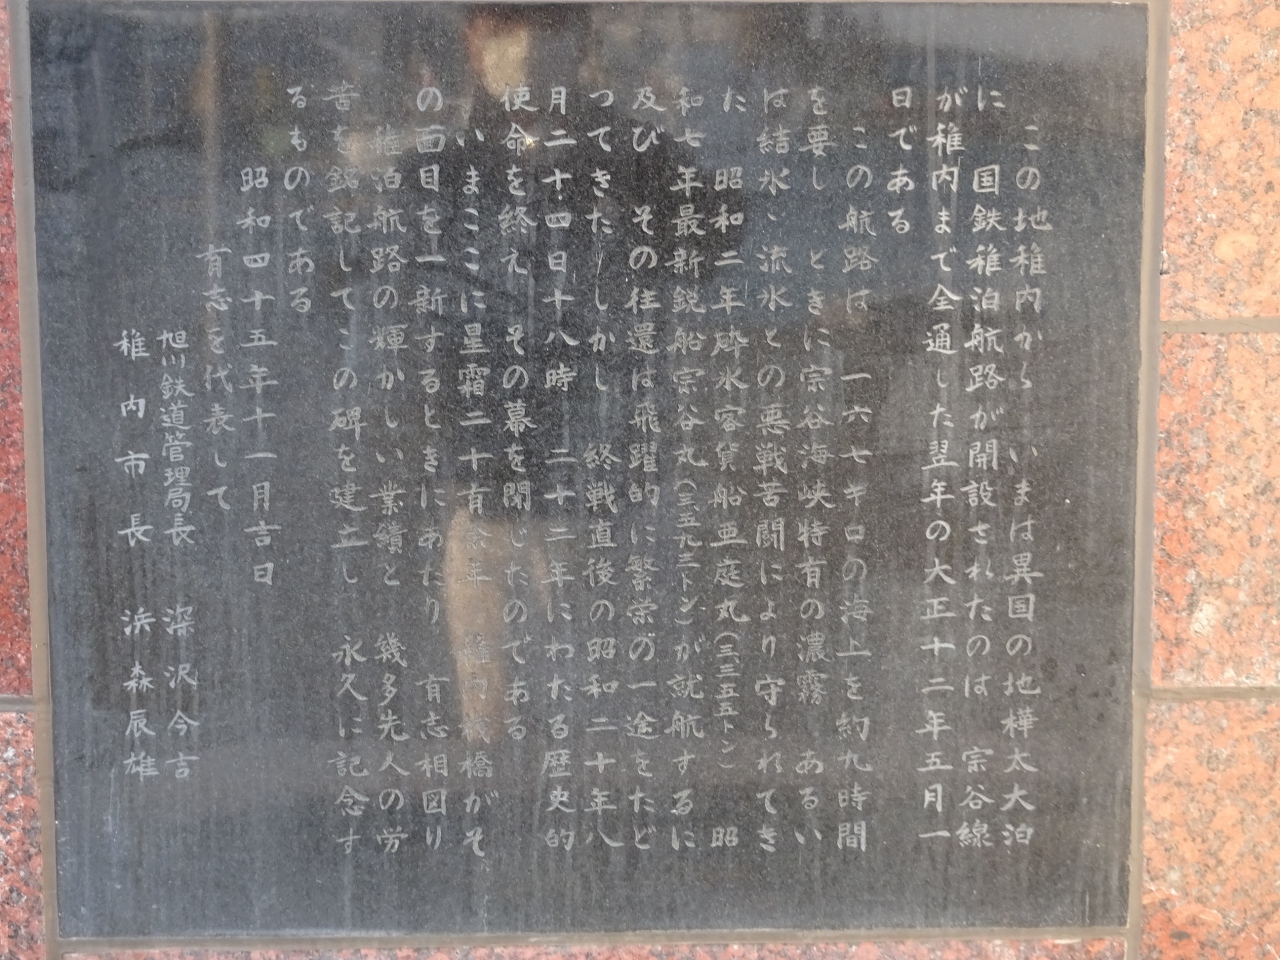 この地稚内から いまは異国の地樺太大泊
に 国鉄稚泊航路が開設されたのは 宗谷線
が稚内まで全通した翌年の大正十二年五月一
日である
この航路は 一六七キロの海上を約九時間
を要し ときに宗谷海峡特有の濃霧 あるい
は結氷、流氷との悪戦苦闘により守られてき
た 昭和二年砕氷客貨船亜庭丸(三.三五五トン 昭
和七年最新鋭船宗谷丸(三.五九三トン)が就航するに
及び その往還は飛躍的に繁栄の一途をたど
つてきた しかし 終戦直後の昭和二十年八
月二十四日十八時 二十三年にわたる歴史的
使命を終え その幕を閉じたのである
いまここに星霜二十有余年 稚内桟橋がそ
の面目を一新するときにあたり 有志相図り
稚泊航路の輝かしい業績と 幾多先人の労
苦を銘記してこの碑を建立し 永久に記念す
るものである
昭和四十五年十一月吉日
有志を代表して
旭川鉄道管理局長 深沢今吉
稚内市長 浜森辰雄